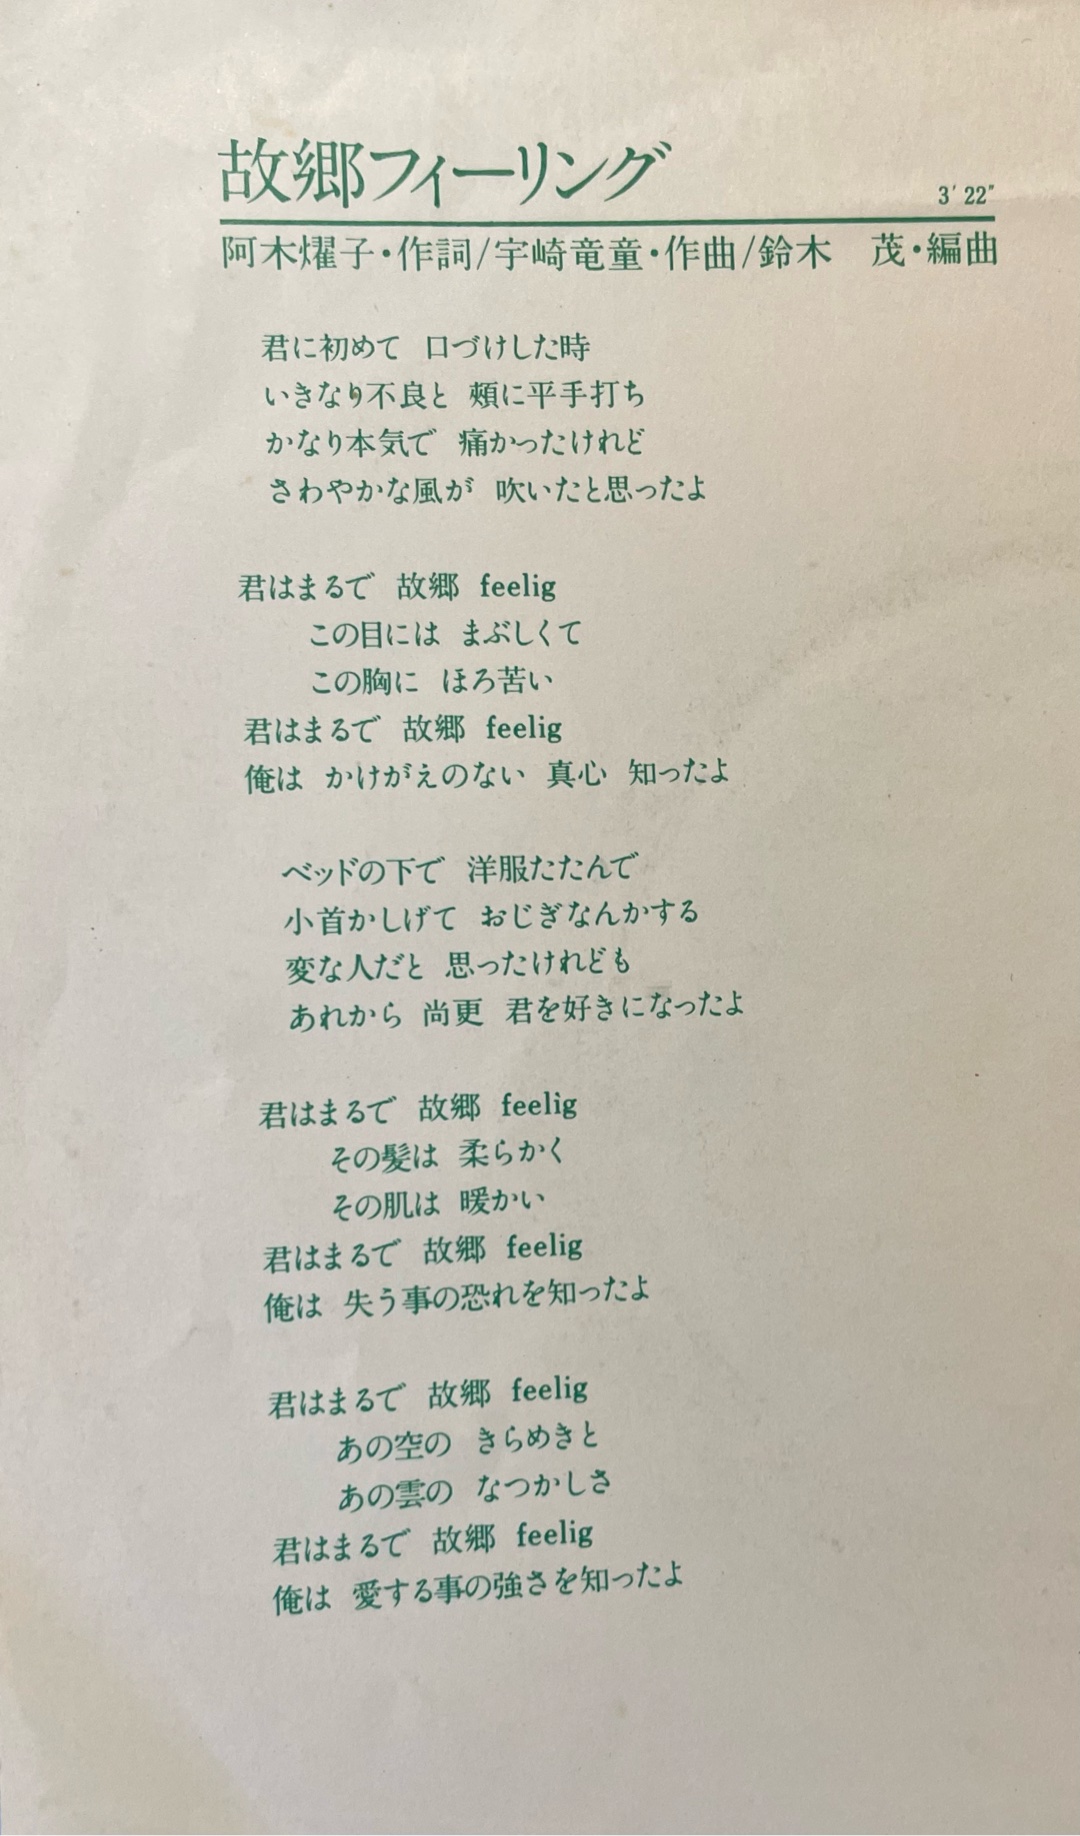 故郷フィーリング
3′22″
阿木燿子・作詞/宇崎竜童・作曲/鈴木　茂・編曲
君に初めて　口づけした時
いきなり不良と　頰に平手打ち
かなり本気で　痛かったけれど
さわやかな風が　吹いたと思ったよ
君はまるで　故郷　feelig
この目には　まぶしくて
この胸に　ほろ苦い
君はまるで　故郷　feelig
俺は　かけがえのない　真心　知ったよ
ベッドの下で　洋服たたんで
小首かしげて　おじぎなんかする
変な人だと　思ったけれども
あれから　尚更　君を好きになったよ
君はまるで　故郷　feelig
その髪は　柔らかく
その肌は　暖かい
君はまるで　故郷　feelig
俺は　失う事の恐れを知ったよ
君はまるで　故郷　feelig
あの空の　きらめきと
あの雲の　なつかしさ
君はまるで　故郷　feelig
俺は　愛する事の強さを知ったよ